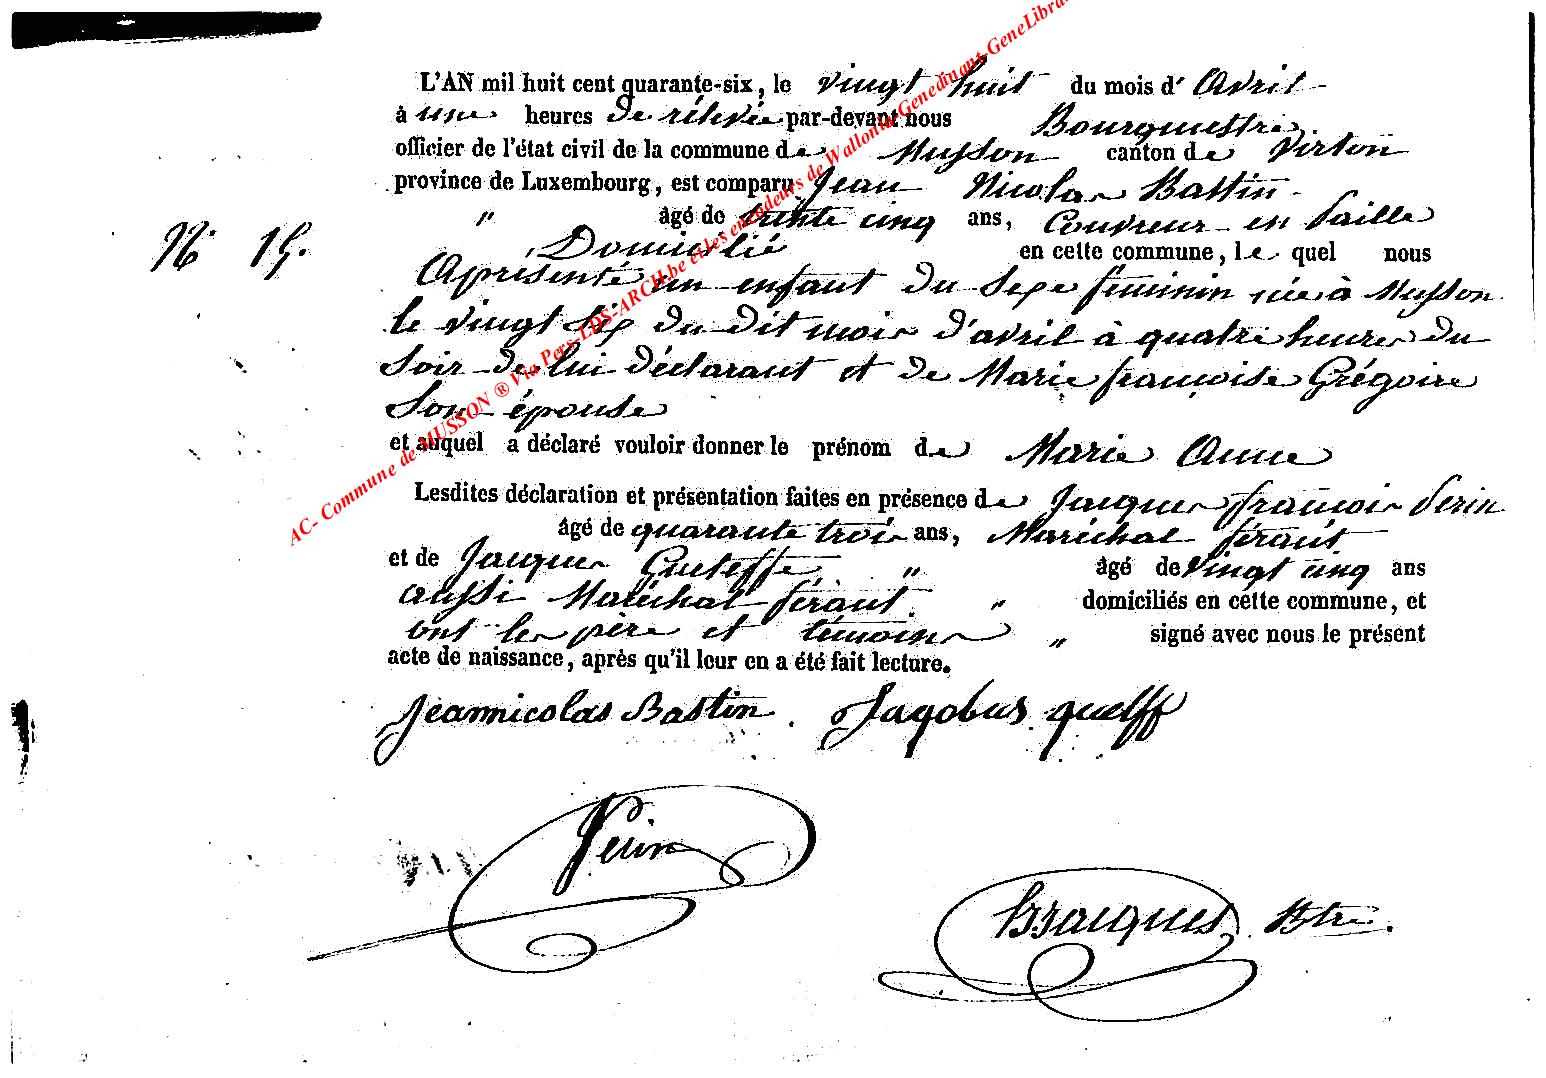 L'AN mil huit cent quarante-six, le vingt huit du mois d' Avril
à une heures de rélévée par-devant nous Bourgmestre
officier de l'état civil de la commune de Musson canton de Virton
province de Luxembourg, est comparu Jean Nicolas Bastin
" âgé de trente cinq ans, Couvreur en paille
N° 15. Domicilié en cette commune, le quel nous
A présenté un enfant du Sexe féminin née à Musson
le vingt six du dit mois d'avril à quatre heures du
Soir de lui déclarant et de Marie françoise Grégoire
Son épouse
et auquel a déclaré vouloir donner le prénom de Marie Anne
Lesdites déclaration et présentation faites en présence de Jacques francois Perin
âgé de quarante trois ans, Maréchal férant
et de Jacques " âgé de vingt cinq ans
aussi Maréchal férant " domiciliés en cette commune, et
ont les père et témoins " signé avec nous le présent
acte de naissance, après qu'il leur en a été fait lecture.
Jeannicolas Bastin. Jagobus quelff
Perin
Jacques Btre.
AC- Commune de MUSSON ® Via Pers-LDS-ARCH.be et les encodeurs de Wallonia-Genedinant-GeneLibra